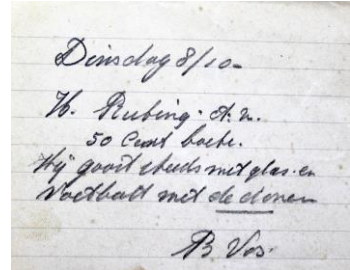 Dinsdag 8/10-
H. Rubing. A.N.
50 Cent boete.
Hij gooit steeds met glas en
voetbalt met de
B Vos.